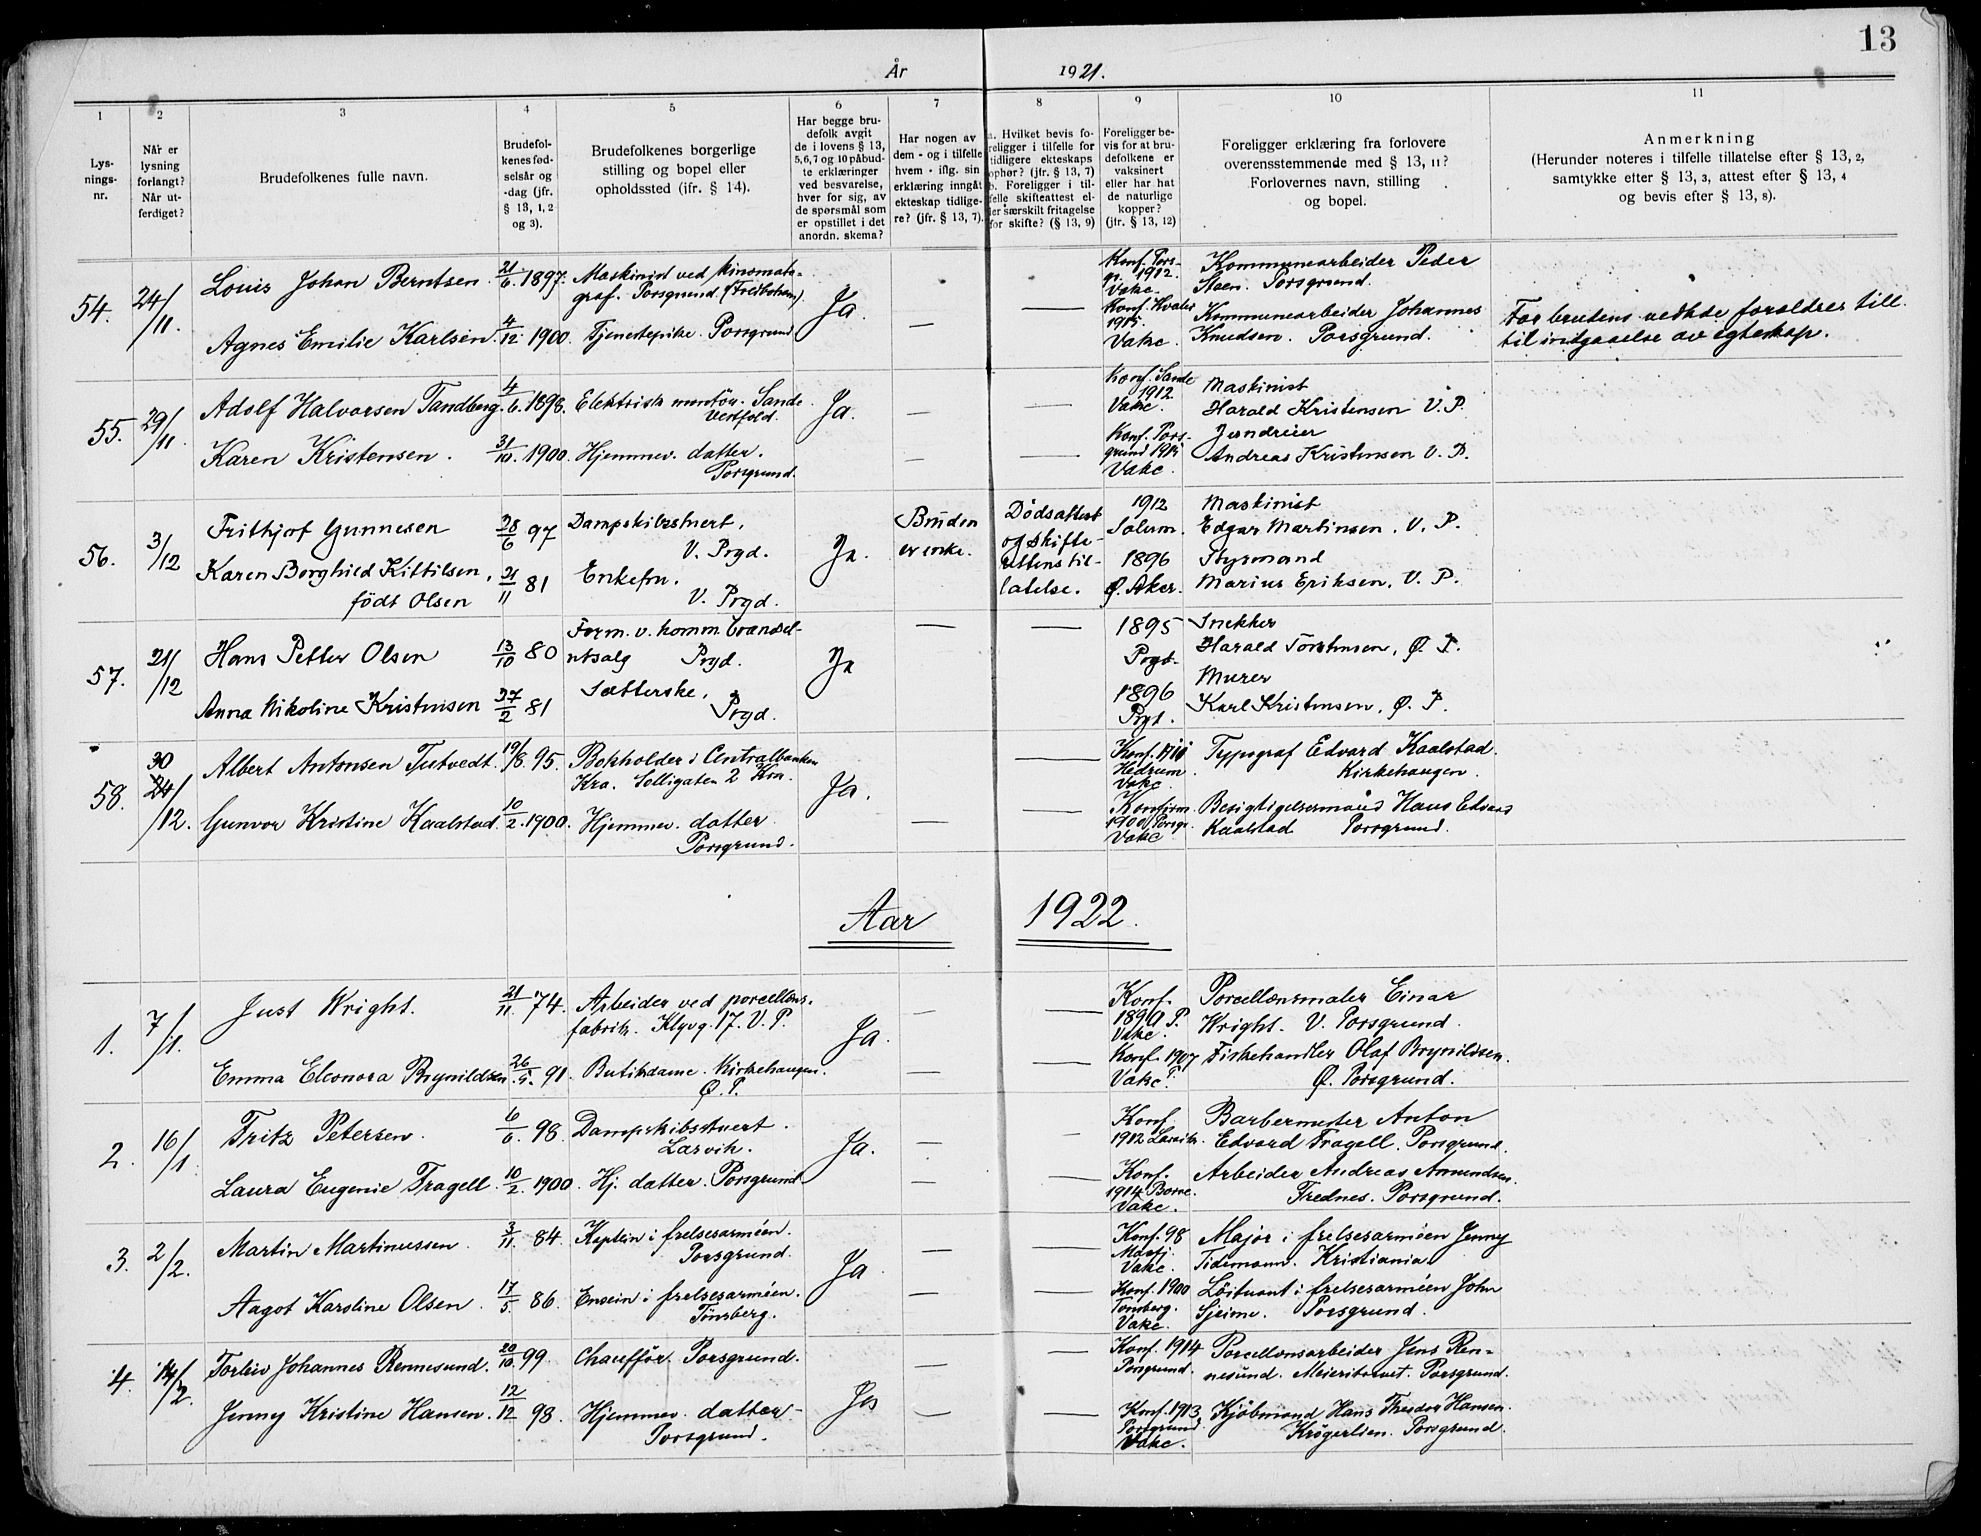 13
År 1921.
1 2 3 4 5 6 7 8 9 10 11
Lys-
nings-
nr.
Når er
lysning
forlangt?
Når ut-
ferdiget?
Brudefolkenes fulle navn.
Brudefol-
kenes fød-
selsår og
-dag (jfr.
§ 13, 1, 2
og 3).
Brudefolkenes borgerlige
stilling og bopel eller
opholdssted (jfr. § 14).
Har begge bru-
defolk avgit
de i lovens § 13,
5, 6, 7 og 10 påbud-
te erklæringer
ved besvarelse,
hver for sig, av
de spørsmål som
er opstillet i det
anordn. skema?
Har nogen av
dem - og i tilfelle
hvem - iflg. sin
erklæring inngåt
ekteskap tidlige-
re? (jfr. § 13, 7).
a. Hvilket bevis fo-
religger i tilfelle for
tidligere ekteskaps
ophør? (jfr. § 13, 7)
b. Foreligger i til-
felle skifteattest el-
ler særskilt fritagelse
for skifte? (§ 13, 9)
Foreligger be-
vis for at bru-
defolkene er
vaksinert
eller har hat
de naturlige
kopper?
(jfr. § 13, 12)
Foreligger erklæring fra forlovere
overensstemmende med § 13, 11?
Forlovernes navn, stilling
og bopel.
Anmerkning
(Herunder noteres i tilfelle tillatelse efter § 13, 2,
samtykke efter § 13, 3, attest efter § 13, 4
og bevis efter § 13, 8).
54. 24/11.
Louis Johan Berntsen. 21/6. 1897.
Maskinist ved kinomato-
graf. Porsgrund.
Ja.
—
Konf. Pors-
gr. 1912.
Vakc.
Kommunearbeider Peder
Steen. Porsgrund.
Agnes Emilie Karlsen. 4/12. 1900. Tjenestepike. Porsgrund
—
Konf. Hvaler
1915.
Vakc.
Kommunearbeider Johannes
Knudsen. Porsgrund.
For brudens vedkde foraldres till.
til indgaaelse av egteskap.
55. 29/11
Adolf Halvorsen Tandberg. 4/6. 1898. Elektrisk montör. Sande
Vestfold.
Ja. — —
Konf. Sande
1912
Vakc.
Maskinist
Harald Kristensen V. P.
Karen Kristensen. 31/10. 1900. Hjemmev. datter.
Porsgrund.
— —
Konf. Pors-
grund 1915
Vakc.
Jerndreier
Andreas Kristensen V. P.
56. 3/12
Frithjof Gunnesen 28/6 97 Dampskibstuert,
V. Prgd.
Ja.
Bruden
er enke.
Dødsattest
og skifte-
rettens til-
latelse.
1912
Solum.
Maskinist
Edgar Martinsen, V. P.
Karen Borghild Kittilsen,
födt Olsen
21/11 81
Enkefru.
V. Prgd.
1896
Ø. Aker.
Styrmand
Marius Eriksen, V. P.
57. 21/12
Hans Petter Olsen 13/10 80
Form. v. komm. brændsel-
utsalg Prgd.
Ja
— —
1895
Prgd.
Snekker
Harald Torstensen, Ø. P.
Anna Nikoline Kristensen 27/2 81
Sætterske,
Prgd.
1896
Prgd.
Murer
Karl Kristensen, Ø. P.
58. 30 24/12.
Albert Antonsen Tutvedt. 19/8. 95. Bokholder i Centralbanken
Kra. Solligaten 2 Kra.
Ja.
—
Konf. 1910
Hedrum.
Vakc.
Typograf Edvard Kaalstad.
Kirkehaugen.
Gunvor Kristine Kaalstad. 10/2. 1900. Hjemmev. datter
Porsgrund.
— —
Konfirm.
Porsgr.
Vakc
Besigtigelsesmand Hans Edvard
Kaalstad Porsgrund.
Aar 1922.
1. 7/1.
Just Wright. 21/11. 74. Arbeider ved porcellæns-
fabrik. Klyvg. 17. V. P.
Ja. — —
Konf.
1890 P.
Vakc.
Porcellænsmaler Einar
Wright. V. Porsgrund.
Emma Eleonora Brynildsen 26/5. 91. Butikdame. Kirkehaugen.
Ø. P.
— —
Konf. 1907
Vakc. P.
Fiskehandler Olaf Brynildsen.
Ø. Porsgrund.
2. 16/1.
Fritz Petersen. 6/6. 98. Dampskibstuert.
Larvik.
Ja. — —
Konf.
1912 Larvik.
Barbermester Anton
Edvard Fragell. Porsgrund.
Laura Eugenie Fragell. 10/2. 1900. Hj. datter. Porsgrund
— —
Konf.
1914 Borre.
Vakc.
Arbeider Andreas Amundsen.
Frednes. Porsgrund.
3. 2/2.
Martin Martinussen. 3/11. 84. Kaptein i frelsesarméen.
Porsgrund.
Ja — —
Konf. 98
Vakc.
Major i frelsesarméen Jenny
Tidemann. Kristiania
Aagot Karoline Olsen. 17/5. 86. Ensein i frelsesarméen.
Tønsberg.
— —
Konf. 1900
Tønsberg.
Vakc.
Löitnant i frelsesarméen John
Sjeime. Porsgrund.
4. 14/2.
Torleiv Johannes Rennesund. 20/10. 99. Chauffør. Porsgrund.
Ja — —
Konf. 1914
Porsgrund.
Porcellænsarbeider Jens Ren-
nesund. Meieritorvet. Porsgrund.
Jenny Kristine Hansen. 12/12 98. Hjemmev. datter-
Porsgrund.
— —
Konf. 1913
Porsgrund
Vakc.
Kjöbmand Hans Theodor Hansen.
Krøgerlien. Porsgrund.